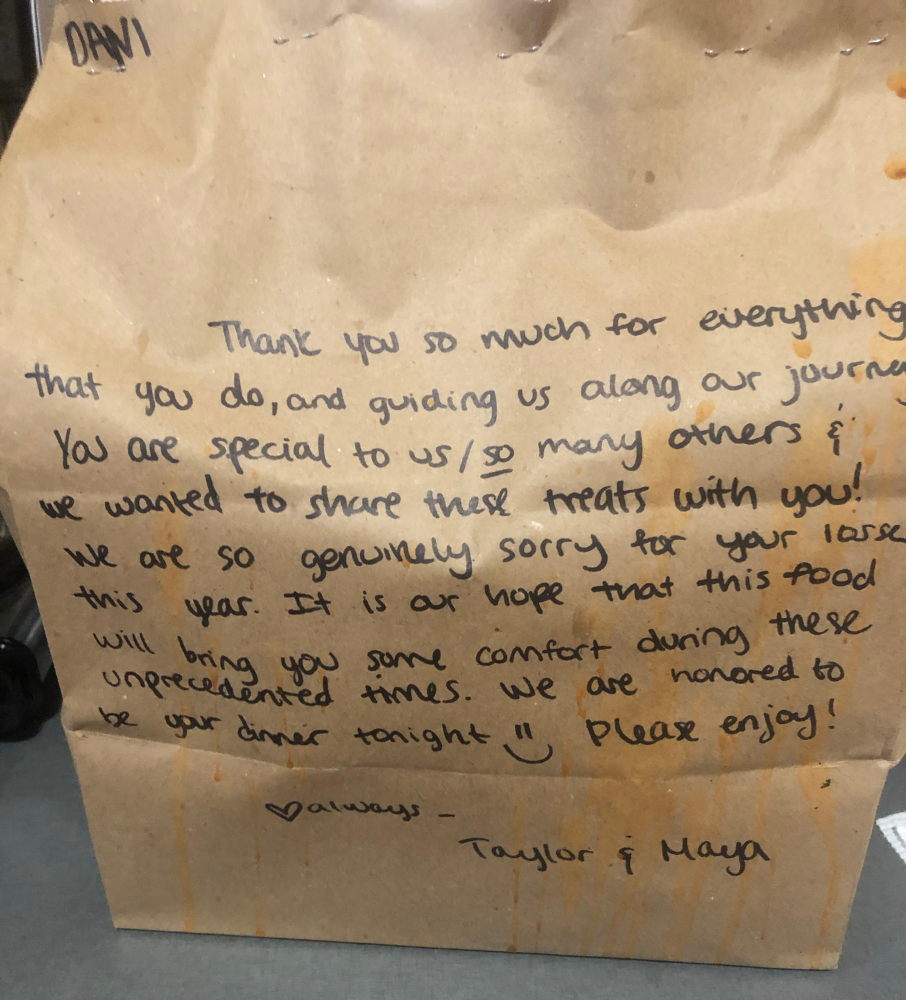 DANI
Thank you so much for everything
that you do, and guiding us along our journey
You are special to us/so many others &
we wanted to share these treats with you!
We are so genuinely sorry for your losse
this year. It is our hope that this food
will bring you some comfort during these
unprecedented times. We are honored to
be your dinner tonight :) Please enjoy!
♡always -
Taylor & Maya